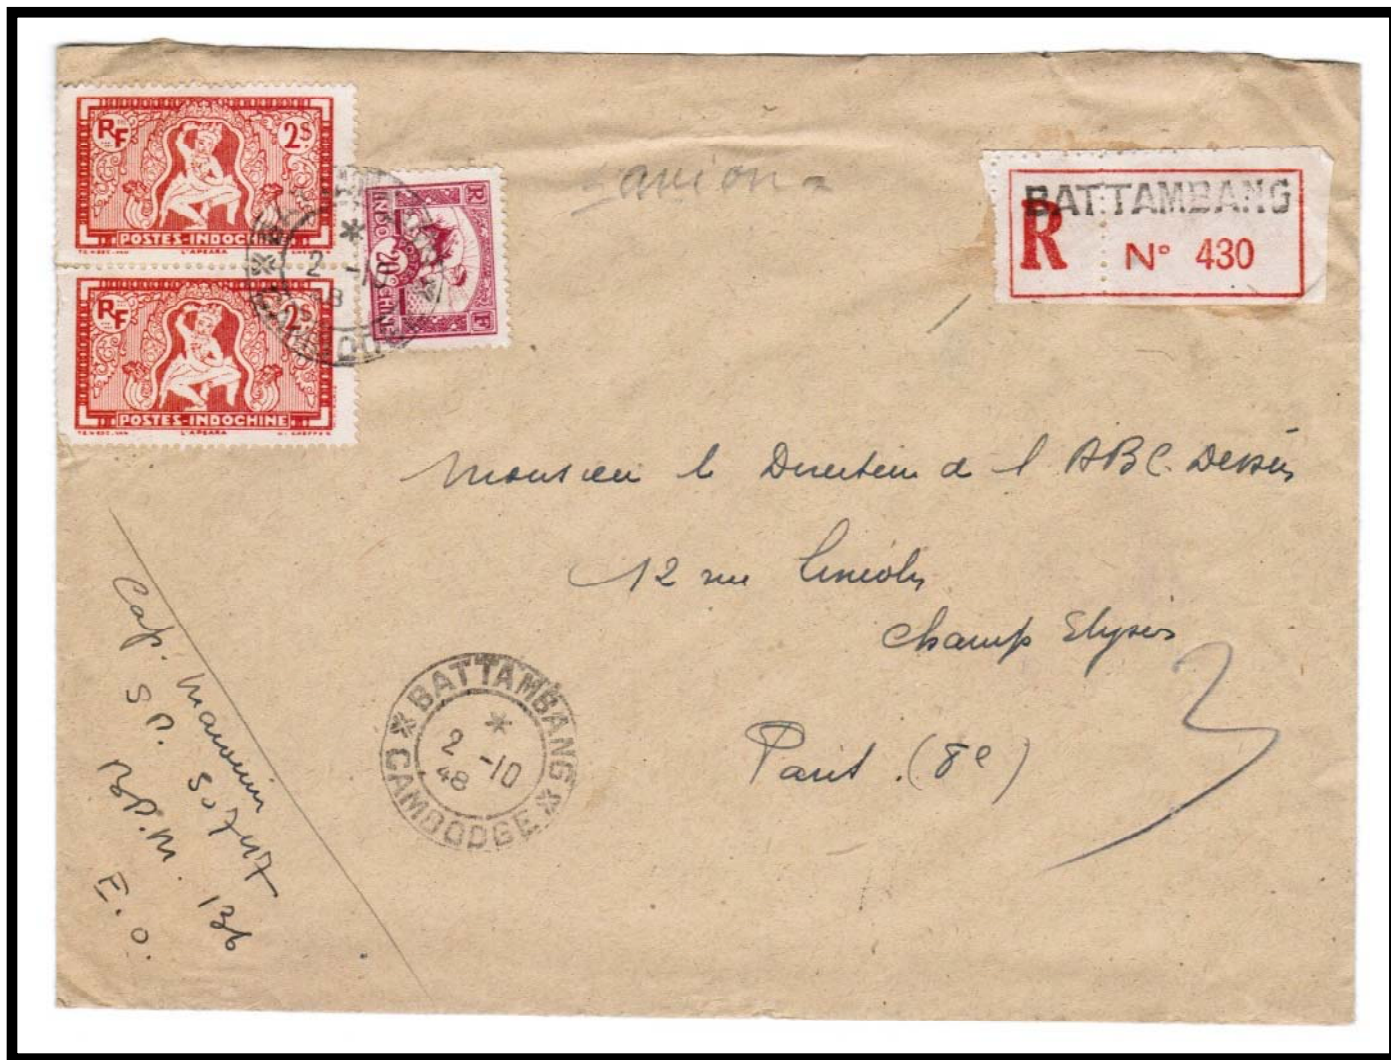 RF 2$
POSTES-INDOCHINE
L'APSARA
RF 2$
POSTES-INDOCHINE
L'APSARA
R F
20c
INDOCHINE
*
2 -10
48
CAMBODGE
avion
BATTAMBANG
R N° 430
Monsieur le Directeur de l'ABC. Dessin
12 rue Lincoln
Champ Elysées
Paris. (8e)
3
BATTAMBANG
*
2 -10
48
CAMBODGE
Cap.
S P. 50747
B.P.M. 136
E.O.